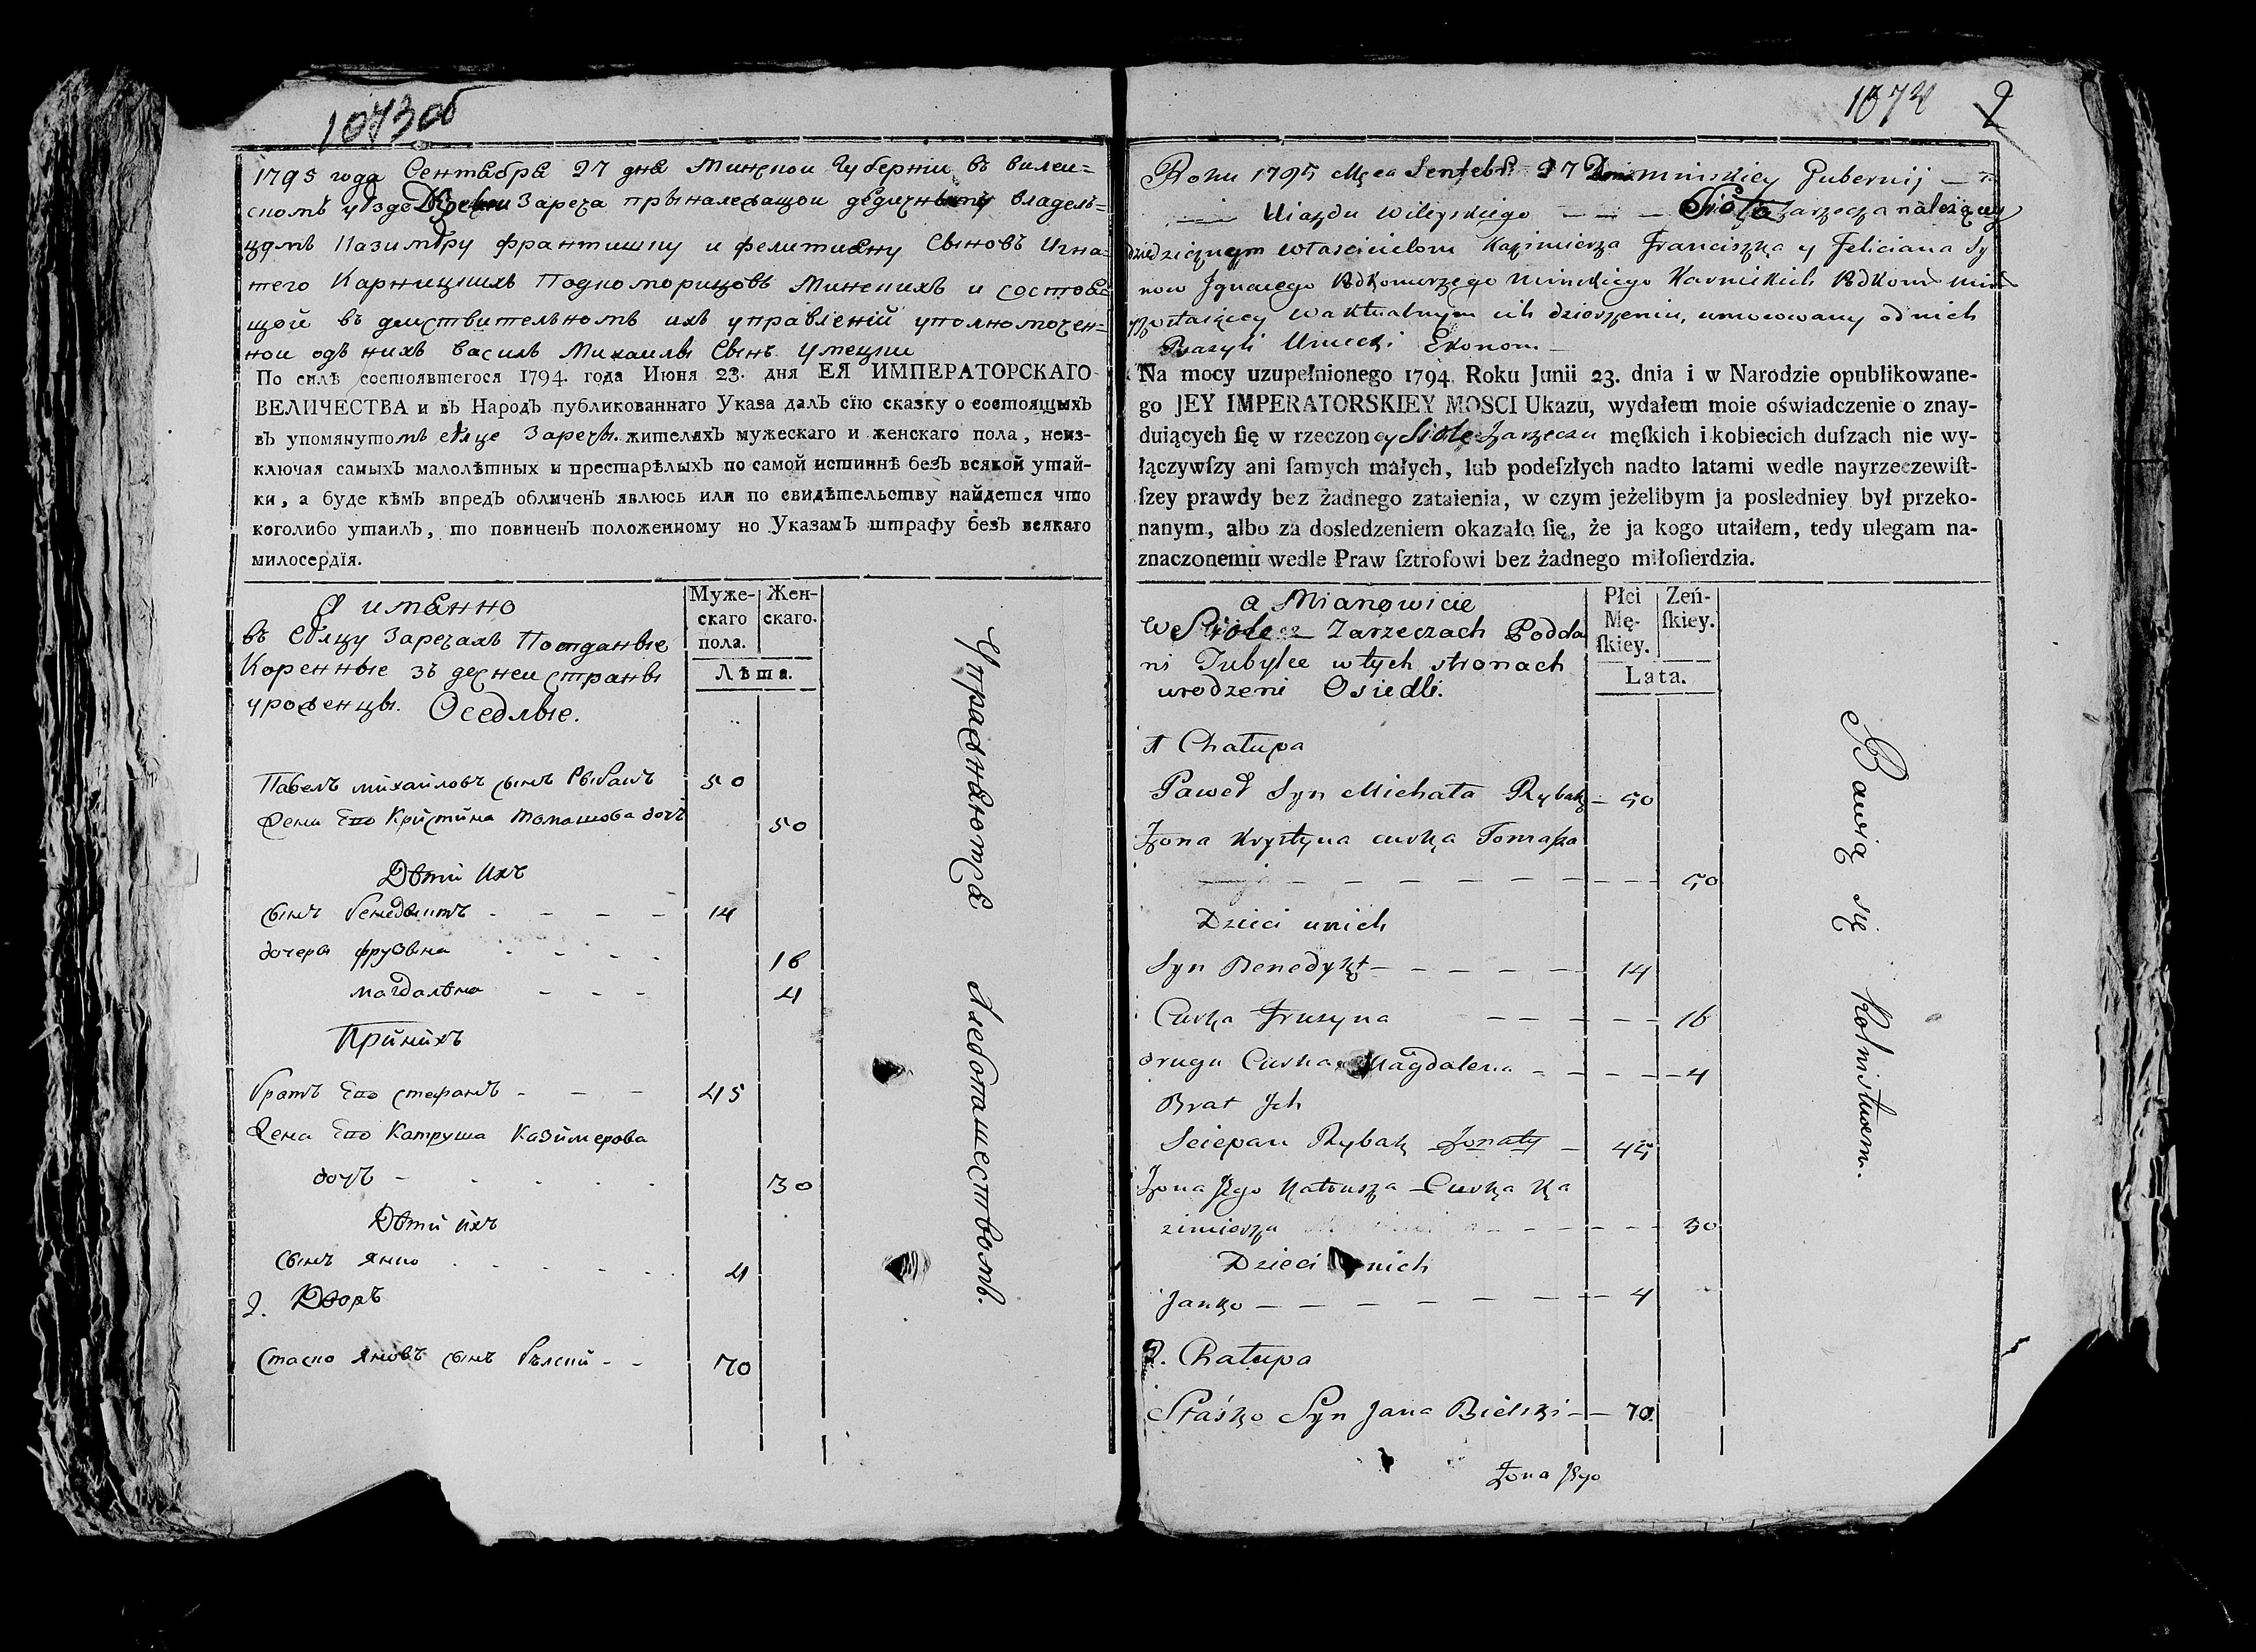 1073об
1795 года Сентября 27 дня Минской Губернии въ вилей=
скомъ уезде Заречя владель=
цамъ Казимеру францишку и фелитияну Сыновъ Игна=
тего Карницкихъ Подкоморицовъ Минскихъ и состоя=
щой въ действительномъ ихъ управлений уполномочен=
ной одъ нихъ василь Михайлы Сынъ Умецки
По силѣ состоявшегося 1794. года Июня 23. дня ЕЯ ИМПЕРАТОРСКАГО
ВЕЛИЧЕСТВА и въ Народъ публикованнаго Указа далъ сїю сказку о состоящыхъ
въ упомянутомъ селце Заречы жителяхъ мужескаго и женскаго пола, неиз-
ключая самыхъ малолѣтных и престарѣлыхъ по самой истиннѣ безъ всякой утай-
ки, а буде кѣмъ впредъ обличенъ явлюсь или по свидѣтельству найдется что
коголибо утаилъ, то повиненъ положенному по Указамъ штрафу безъ всякаго
милосердїя.
А имянно
въ Селцу Заречахъ Потданые
Коренные зъ
уроженцы. Оседлые.
Муже-
скаго
пола.
Жен-
скаго.
Лѣта.
Павелъ михайловъ сынъ Рыбакъ 50
жена Его Кристина томашова дочь 50
Дети ихъ
сынъ бенедыктъ - - - - 14
дочеры фрузына - - - - 16
магдалена - - - 4
При нихъ
братъ Его стефанъ - - - 45
жена Его Катруша Казимерова
дочь - - - - - 30
Дети ихъ
сынъ янко - - - - - 4
2. Дворъ
Стаско яновъ сынъ бѣлски - - 70
Упражняются хлебопашествомъ.
1074 2
Roku 1795 Mca Sentebr. 27 Dnia minskiey Gubernij —
Uiazdu wileyskiego — — — Sioła Zarzecza należący
dziedzicznym własciciełom Kazimierza Franciszka y Feliciana Sy
now Ignacego Podkomorzego minskiego Karnickich Podkom min
zostaiącey w aktualnym ich dzierzeniu, umocowany od nich
Bazyli Umecki Ekonom —
Na mocy uzupełnionego 1794 Roku Junii 23. dnia i w Narodzie opublikowane-
go JEY IMPERATORSKIEY MOSCI Ukazu, wydałem moie oświadczenie o znay-
duiących ſię w rzeczoney Siole Zarzeczu męſkich i kobiecich duſzach nie wy-
łączywſzy ani ſamych małych, lub podeſzłych nadto latami wedle nayrzeczewiſt-
ſzey prawdy bez żadnego zataienia, w czym jeżelibym ja posledniey był przeko-
nanym, albo za dosledzeniem okazało ſię, że ja kogo utaiłem, tedy ulegam na-
znaczonemu wedle Praw ſztrofowi bez żadnego miłoſierdzia.
a Mianowicie
w Siole Zarzeczach Podda
ni Tubylce w tych stronach
urodzeni Osiedli.
Płci
Mę-
ſkiey.
Zeń-
ſkiey.
Lata.
Chałupa
Paweł Syn Michała Rybak — 50
Zona Krystyna curka Tomasza
— — — — — — — 50
Dzieci unich
Syn Benedykt — — — — — 14
Curka Fruzyna — — — — — 16
druga Curka Magdalena — — — — 4
Brat Ich
Sciepan Rybak Zonaty — 45
Zona Jego Katrusza Curka Ka
zimierza — — — — — 30
Dzieci unich
Janko — — — — — — — 4
2. Chałupa
Staśko Syn Jana Bielski — — 70
Zona Jego
Bawią się Rolnistwem.